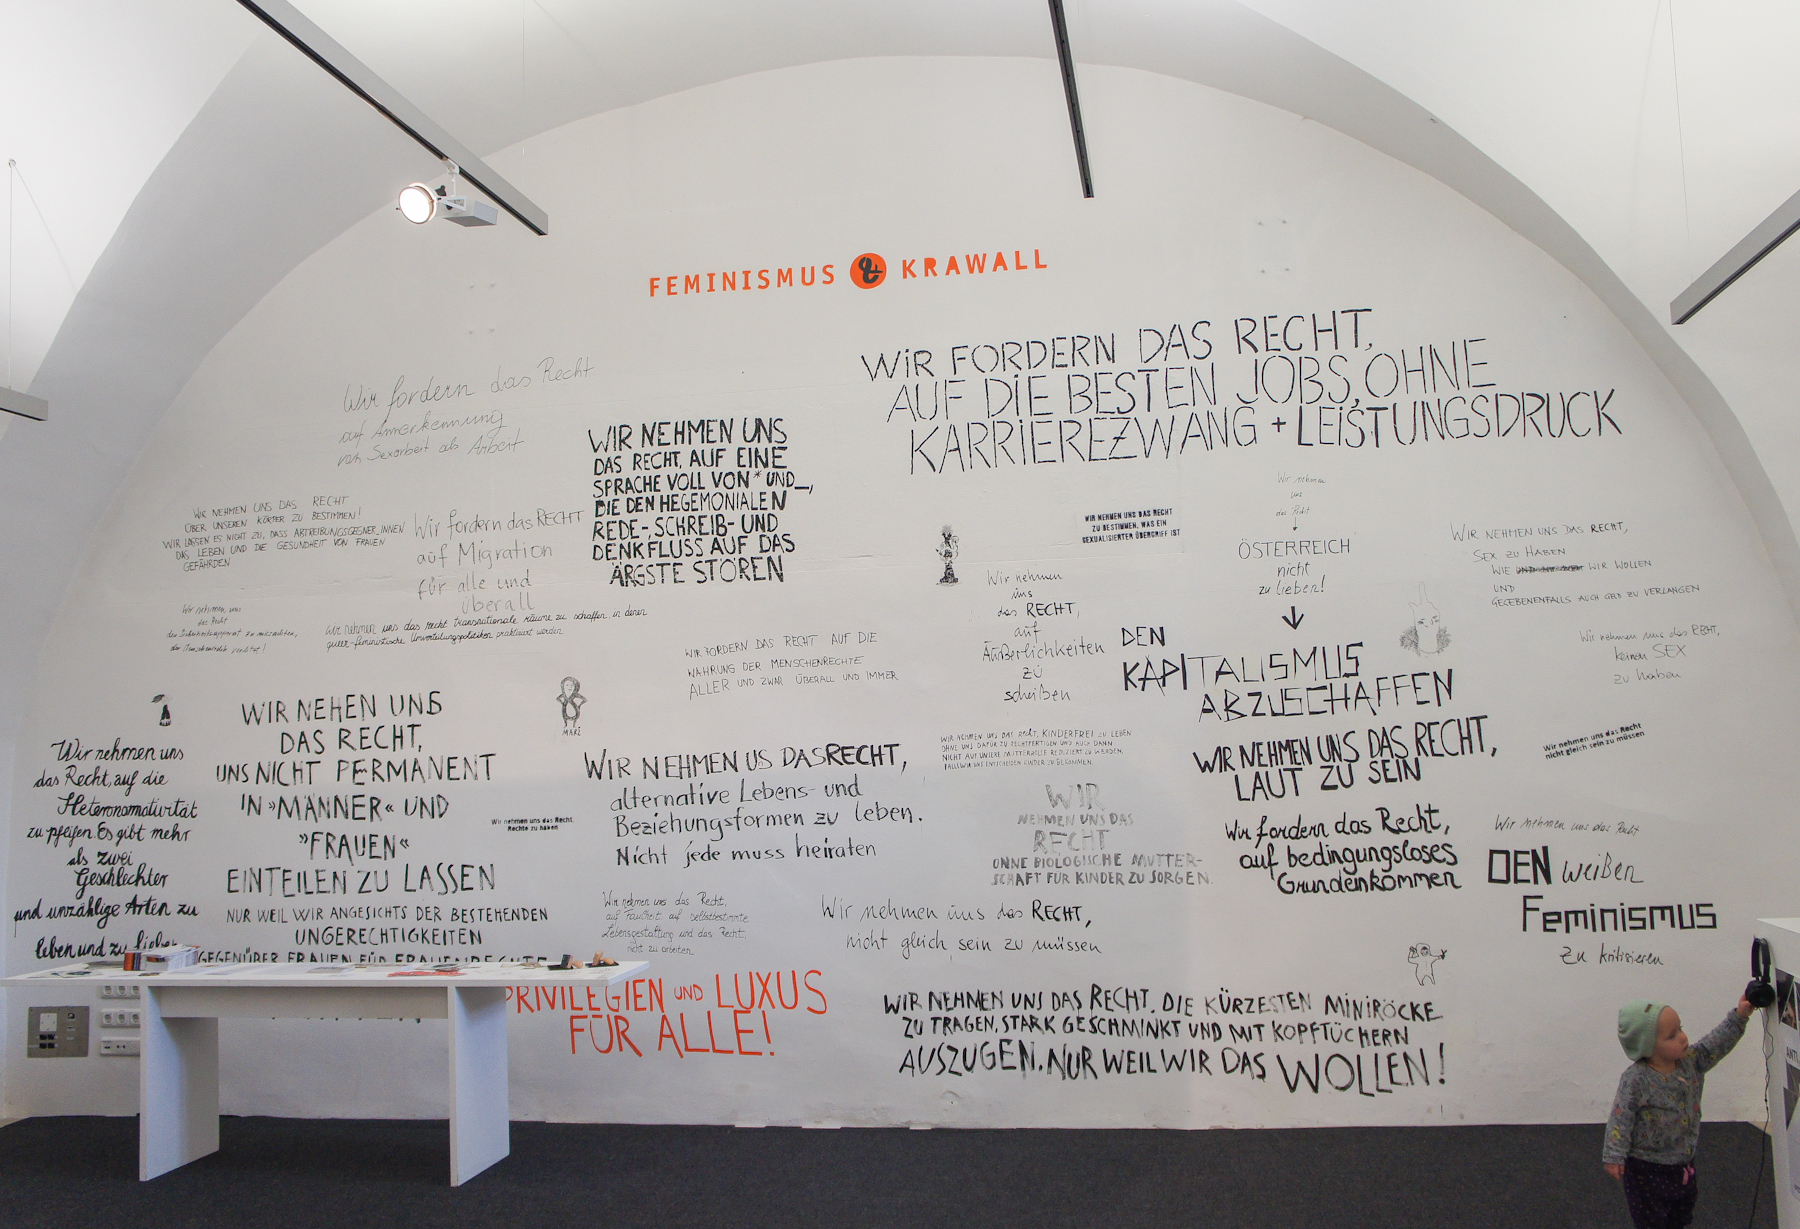 FEMINISMUS & KRAWALL
WiR FORDERN DAS RECHT,
AUF DiE BESTEN JOBS, OHNE
KARRiEREZWANG + LEiSTUNGSDRUCK
Wir fordern das Recht
auf Annerkennung
von Sexarbeit als Arbeit
WIR NEHMEN UNS
DAS RECHT, AUF EINE
SPRACHE VOLL VON * UND _,
DIE DEN HEGEMONIALEN
REDE-, SCHREIB- UND
DENKFLUSS AUF DAS
ÄRGSTE STÖREN
WIR NEHMEN UNS DAS RECHT
ÜBER UNSEREN KÖRPER ZU BESTIMMEN!
WIR LASSEN ES NICHT ZU, DASS ABTREIBUNGSGEGNER_INNEN
DAS LEBEN UND DIE GESUNDHEIT VON FRAUEN
GEFÄHRDEN
Wir fordern das RECHT
auf Migration
für alle und
überall
WIR NEHMEN UNS DAS RECHT
ZU BESTIMMEN, WAS EIN
SEXUALISIERTER ÜBERGRIFF IST
Wir nehmen
uns
das Recht
ÖSTERREICH
nicht
zu lieben!
WIR NEHMEN UNS DAS RECHT,
SEX ZU HABEN
WIE WIR WOLLEN
UND
GEGEBENENFALLS AUCH GELD ZU VERLANGEN
Wir nehmen uns
das Recht
den
zu
Wir nehmen uns das Recht transnationale Räume zu schaffen, in denen
queer-feministische Umverteilungspolitiken praktiziert werden
WIR FORDERN DAS RECHT AUF DIE
WAHRUNG DER MENSCHENRECHTE
ALLER UND ZWAR ÜBERALL UND IMMER
Wir nehmen
uns
das RECHT,
auf
Äußerlichkeiten
zu
scheißen
DEN
KAPITALISMUS
ABZUSCHAFFEN
Wir nehmen uns das RECHT,
keinen SEX
zu haben
Wir nehmen uns
das Recht, auf die
Heteronomativität
zu pfeifen. Es gibt mehr
als zwei
Geschlechter
und unzählige Arten zu
leben und zu lieben
WIR NEHEN UNS
DAS RECHT,
UNS NICHT PERMANENT
IN »MÄNNER« UND
»FRAUEN«
EINTEILEN ZU LASSEN
NUR WEIL WIR ANGESICHTS DER BESTEHENDEN
UNGERECHTIGKEITEN
GEGENÜBER FRAUEN FÜR FRAUENRECHTE
MARZ
Wir nehmen uns das Recht
Rechte zu haben
WIR NEHMEN US DAS RECHT,
alternative Lebens- und
Beziehungsformen zu leben.
Nicht jede muss heiraten
WIR NEHMEN UNS DAS RECHT, KINDERFREI ZU LEBEN
OHNE UNS DAFÜR ZU RECHTFERTIGEN UND AUCH DANN
NICHT AUF UNSERE MUTTERROLLE REDUZIERT ZU WERDEN,
FALLS WIR UNS ENTSCHEIDEN KINDER ZU BEKOMMEN.
WIR
NEHMEN UNS DAS
RECHT
OHNE BIOLOGISCHE MUTTER-
SCHAFT FÜR KINDER ZU SORGEN.
WIR NEHMEN UNS DAS RECHT,
LAUT ZU SEIN
Wir nehmen uns das Recht
nicht gleich sein zu müssen
Wir fordern das Recht,
auf bedingungsloses
Grundeinkommen
Wir nehmen uns das Recht
DEN weißen
Feminismus
zu kritisieren
Wir nehmen uns das Recht,
auf Faulheit, auf selbstbestimmte
Lebensgestaltung und das Recht,
nicht zu arbeiten.
Wir nehmen uns das RECHT,
nicht gleich sein zu müssen
PRIVILEGIEN UND LUXUS
FÜR ALLE!
WIR NEHMEN UNS DAS RECHT. DIE KÜRZESTEN MINIRÖCKE
ZU TRAGEN, STARK GESCHMINKT UND MIT KOPFTÜCHERN
AUSZUGEN. NUR WEIL WIR DAS WOLLEN!